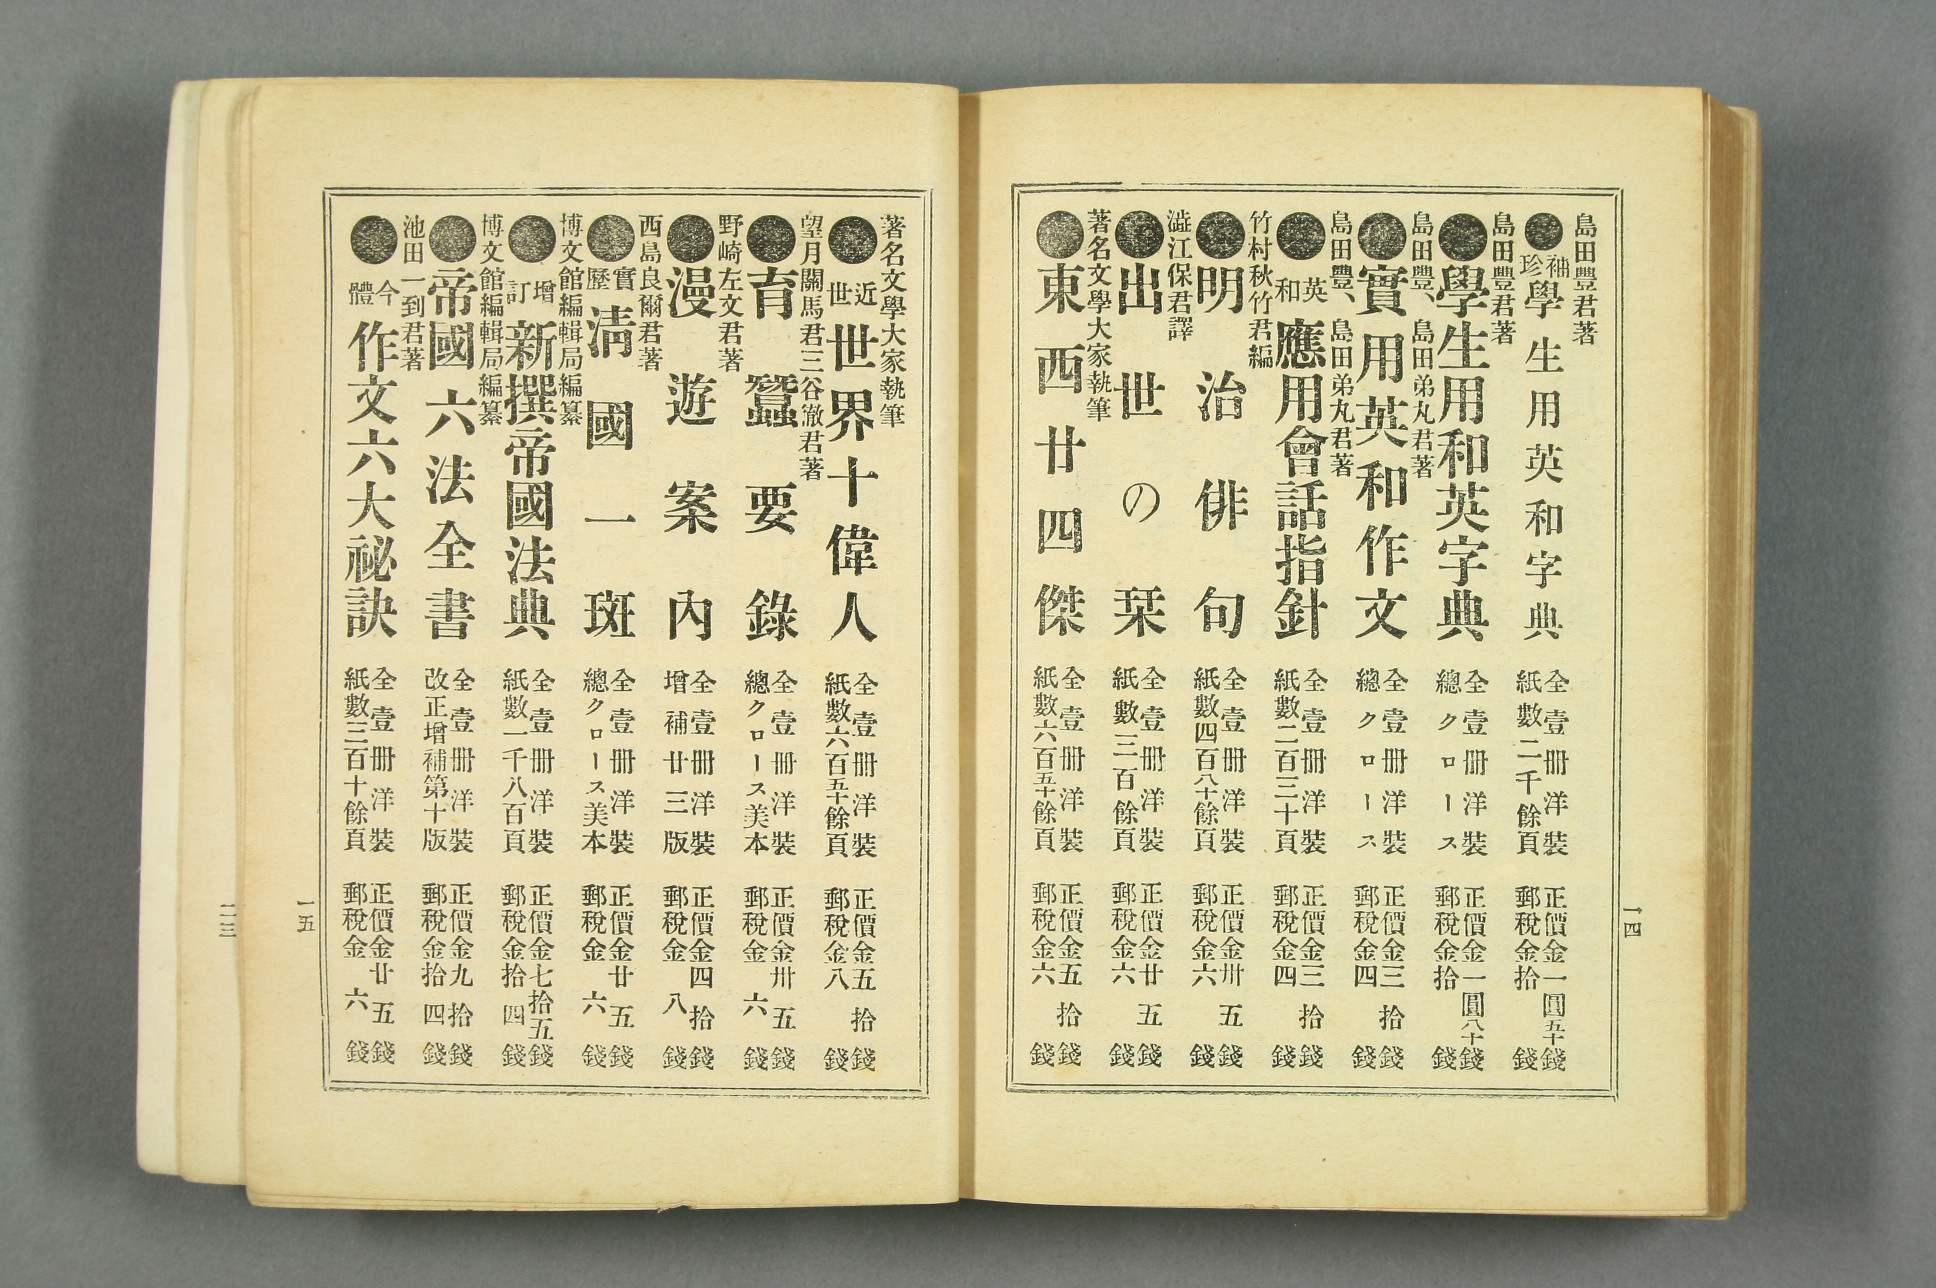 島田豐君著
●袖珍學生用英和字典
全壹冊洋裝
紙數二千餘頁
正價金一圓五十錢
郵稅金拾錢
島田豐君著
●學生用和英字典
全壹冊洋裝
總クロース
正價金一圓八十錢
郵稅金拾錢
島田豐、島田弟丸君著
●實用英和作文
全壹冊洋裝
總クロース
正價金三拾錢
郵稅金四錢
島田豐、島田弟丸君著
●英和應用會話指針
全壹冊洋裝
紙數二百三十頁
正價金三拾錢
郵稅金四錢
竹村秋竹君編
●明治俳句
全壹冊洋裝
紙數四百八十餘頁
正價金卅五錢
郵稅金六錢
澁江保君譯
●出世の栞
全壹冊洋裝
紙數三百餘頁
正價金廿五錢
郵稅金六錢
著名文學大家執筆
●東西廿四傑
全壹冊洋裝
紙數六百五十餘頁
正價金五拾錢
郵稅金六錢
一四
著名文學大家執筆
●近世世界十偉人
全壹冊洋裝
紙數六百五十餘頁
正價金五拾錢
郵稅金八錢
望月關馬君三谷徹君著
●育蠶要錄
全壹冊洋裝
總クロース美本
正價金卅五錢
郵稅金六錢
野崎左文君著
●漫遊案內
全壹冊洋裝
增補廿三版
正價金四拾錢
郵稅金八錢
西島良爾君著
●實歷淸國一斑
全壹冊洋裝
總クロース美本
正價金廿五錢
郵稅金六錢
博文館編輯局編纂
●增訂新撰帝國法典
全壹冊洋裝
紙數一千八百頁
正價金七拾五錢
郵稅金拾四錢
博文館編輯局編纂
●帝國六法全書
全壹冊洋裝
改正增補第十版
正價金九拾錢
郵稅金拾四錢
池田一到君著
●今體作文六大祕訣
全壹冊洋裝
紙數三百十餘頁
正價金廿五錢
郵稅金六錢
一五
二三